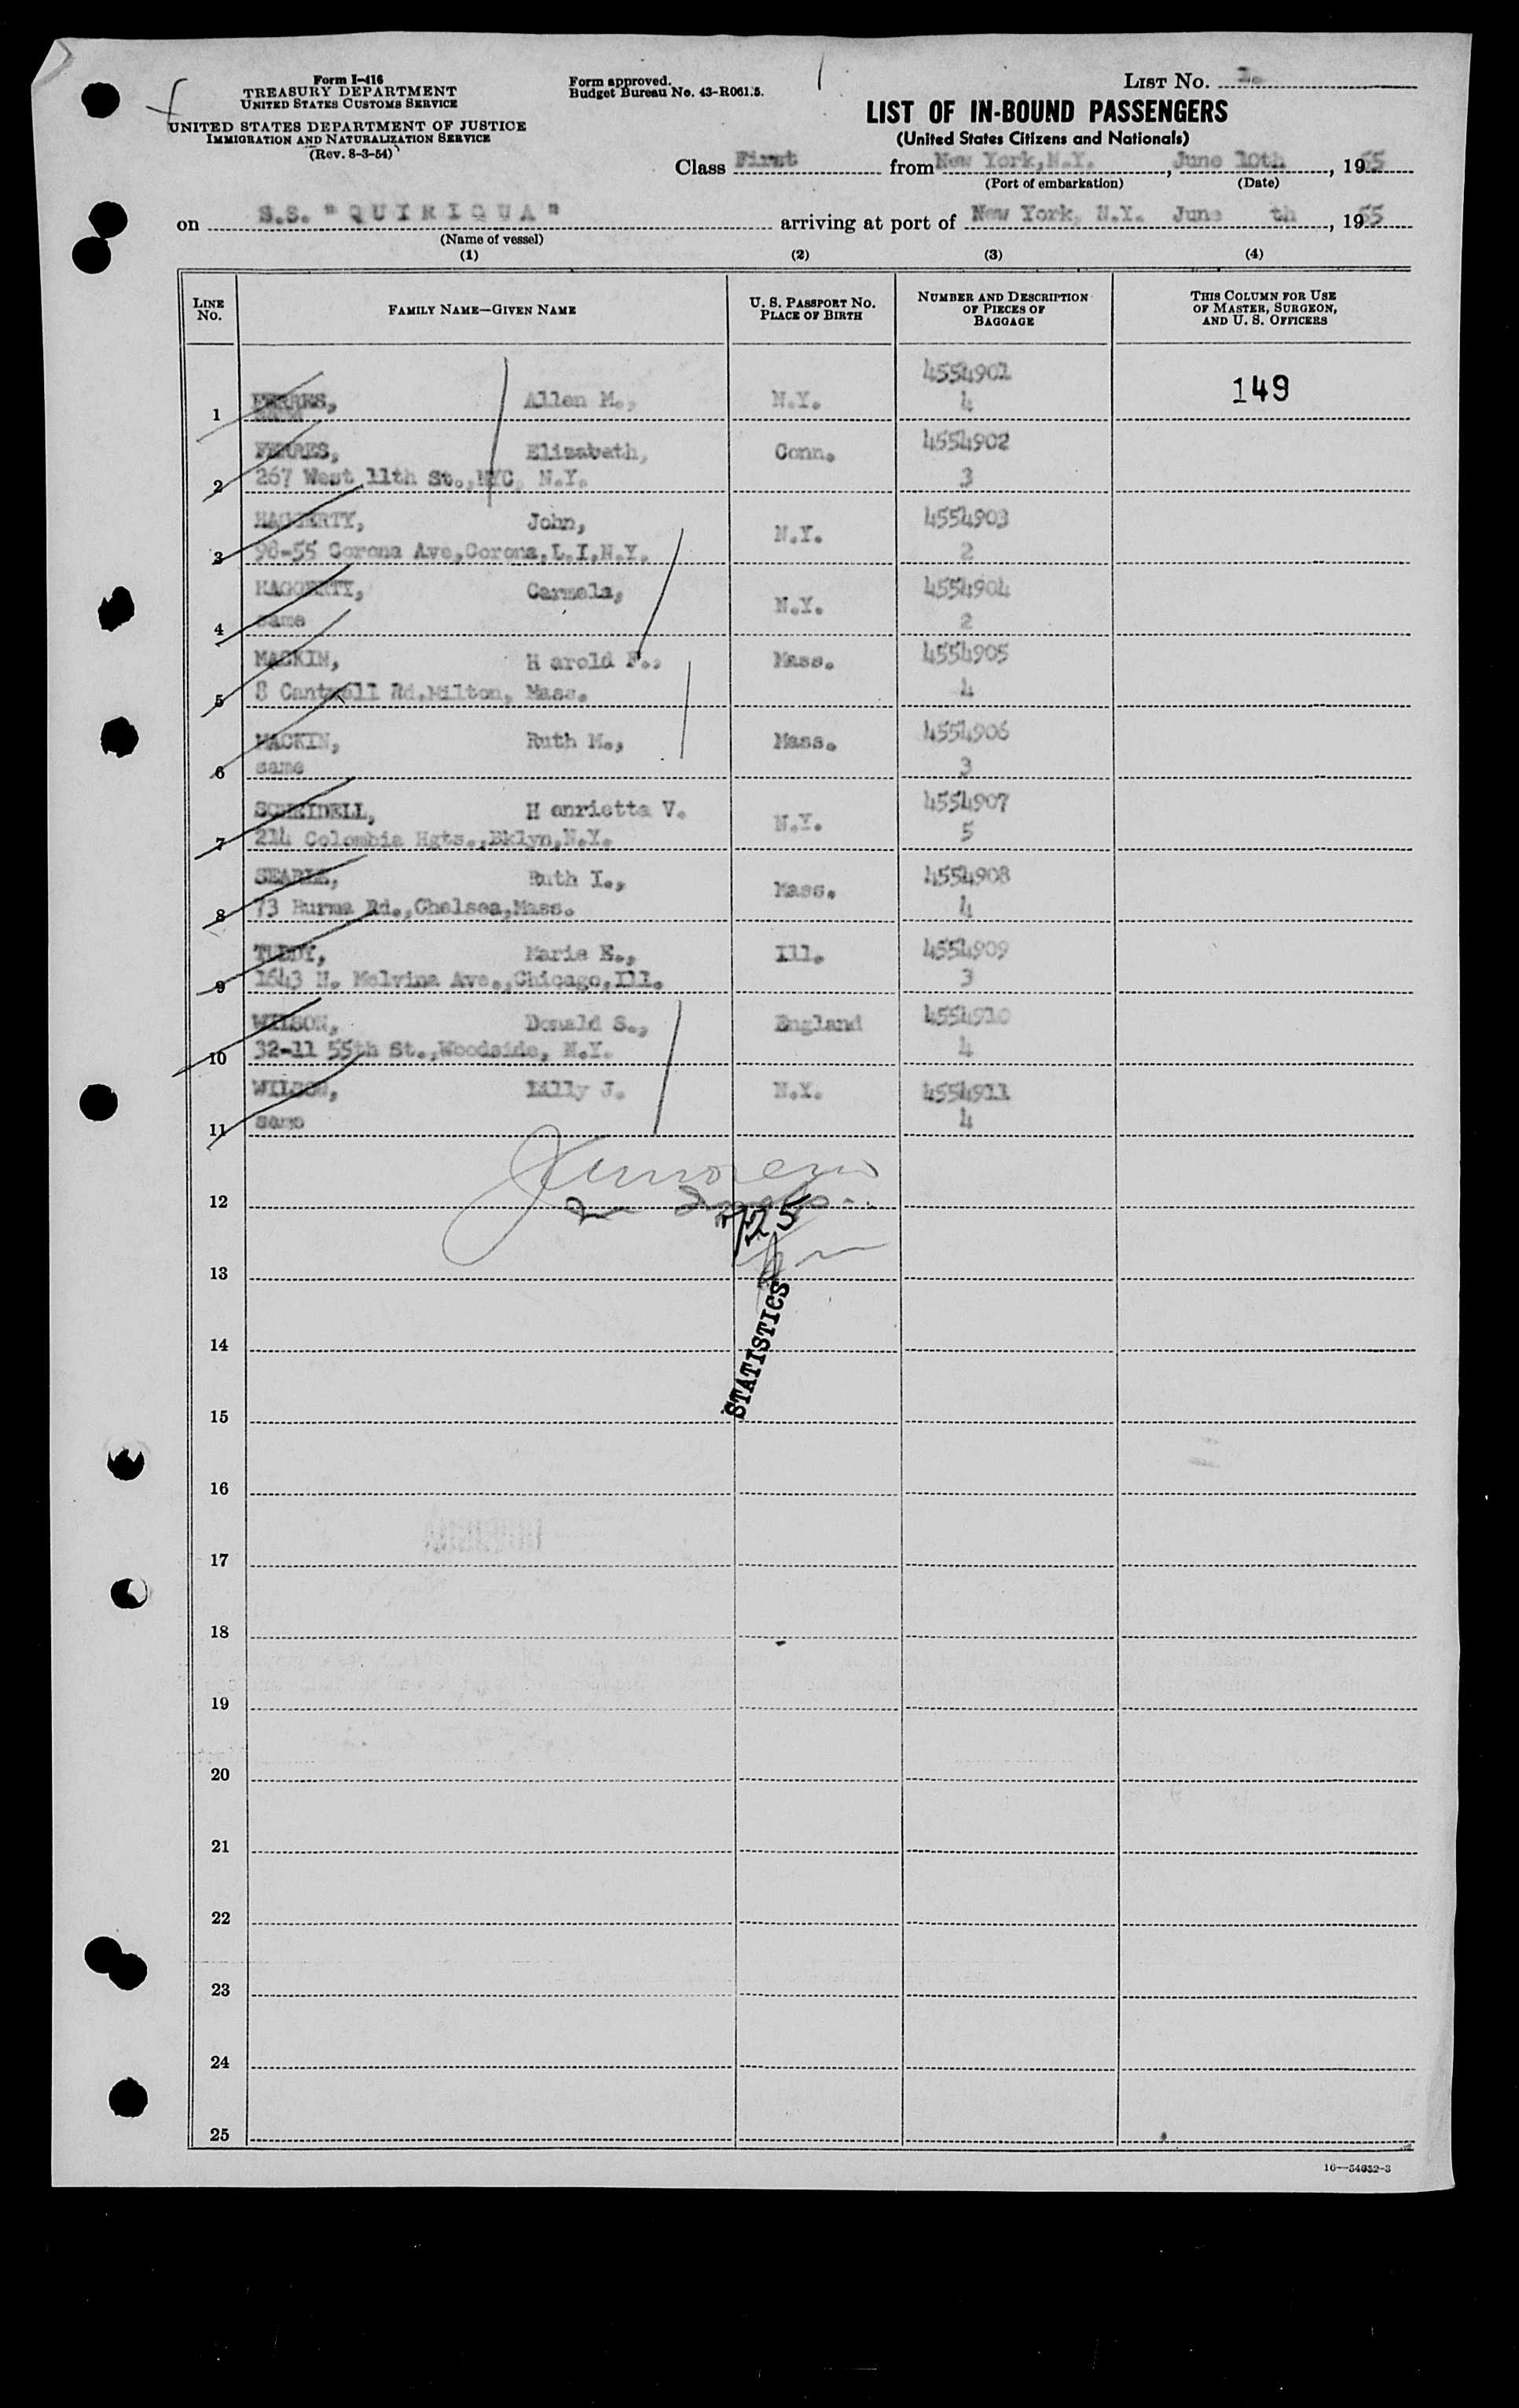 Form I-416
TREASURY DEPARTMENT
UNITED STATES CUSTOMS SERVICE
UNITED STATES DEPARTMENT OF JUSTICE
IMMIGRATION AND NATURALIZATION SERVICE
(Rev. 8-3-54)
Form approved.
Budget Bureau No. 43-R061.5.
LIST No.
LIST OF IN-BOUND PASSENGERS
(United States Citizens and Nationals)
Class First from New York, N.Y. , June 10th , 1955
(Port of embarkation) (Date)
on S.S. "QUIRIQUA" arriving at port of New York, N.Y. June th , 1955
(Name of vessel)
(1) (2) (3) (4)
LINE No. FAMILY NAME—GIVEN NAME U. S. PASSPORT NO. PLACE OF BIRTH NUMBER AND DESCRIPTION OF PIECES OF BAGGAGE THIS COLUMN FOR USE OF MASTER, SURGEON, AND U. S. OFFICERS
4554901
1 FERRES, Allen M., N.Y. 4 149
FERRES, Elizabeth, Conn. 4554902
2 267 West 11th St., NYC, N.Y. 3
HAGGERTY, John, N.Y. 4554903
3 98-55 Corona Ave,Corona,L.I,N.Y. 2
HAGGERTY, Carmela, N.Y. 4554904
4 same 2
MACKIN, H arold F., Mass. 4554905
5 8 Cantwell Rd.Milton, Mass. 4
MACKIN, Ruth M., Mass. 4554906
6 same 3
H enrietta V. N.Y. 4554907
7 214 Colombia Hgts.,Bklyn,N.Y. 5
SEARLE, Ruth I., Mass. 4554908
8 73 Burma Rd.,Chelsea,Mass. 4
TUDDY, Marie E., Ill. 4554909
9 1643 N. Melvina Ave.,Chicago,Ill. 3
WILSON, Donald S., England 4554910
10 32-11 55th St.,Woodside, N.Y. 4
WILSON, Lilly J. N.Y. 4554911
11 same 4
12
725
13
STATISTICS
14
15
16
17
18
19
20
21
22
23
24
25
16—54632-3